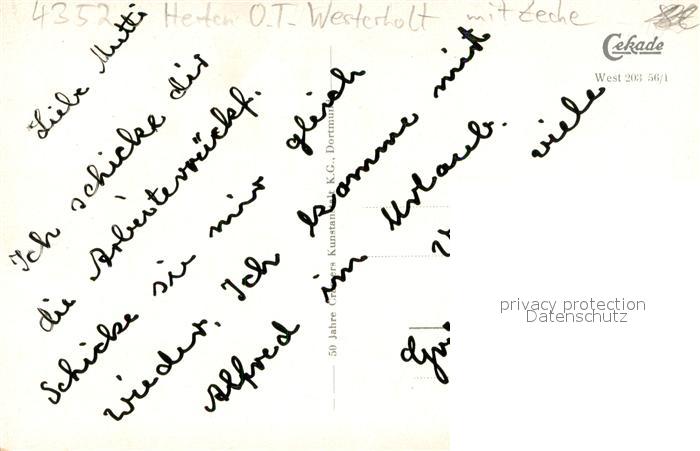 4352 Herten O.T. Westerholt mit Zeche
Cekade
West 203 56/1
Liebe Mutti
Ich schicke dir
die Arbeiterrückf.
Schicke sie mir gleich
wieder. Ich komme mit
Alfred im Urlaub.
viele
50 Jahre Cramers Kunstanstalt K.G., Dortmund
privacy protection
Datenschutz